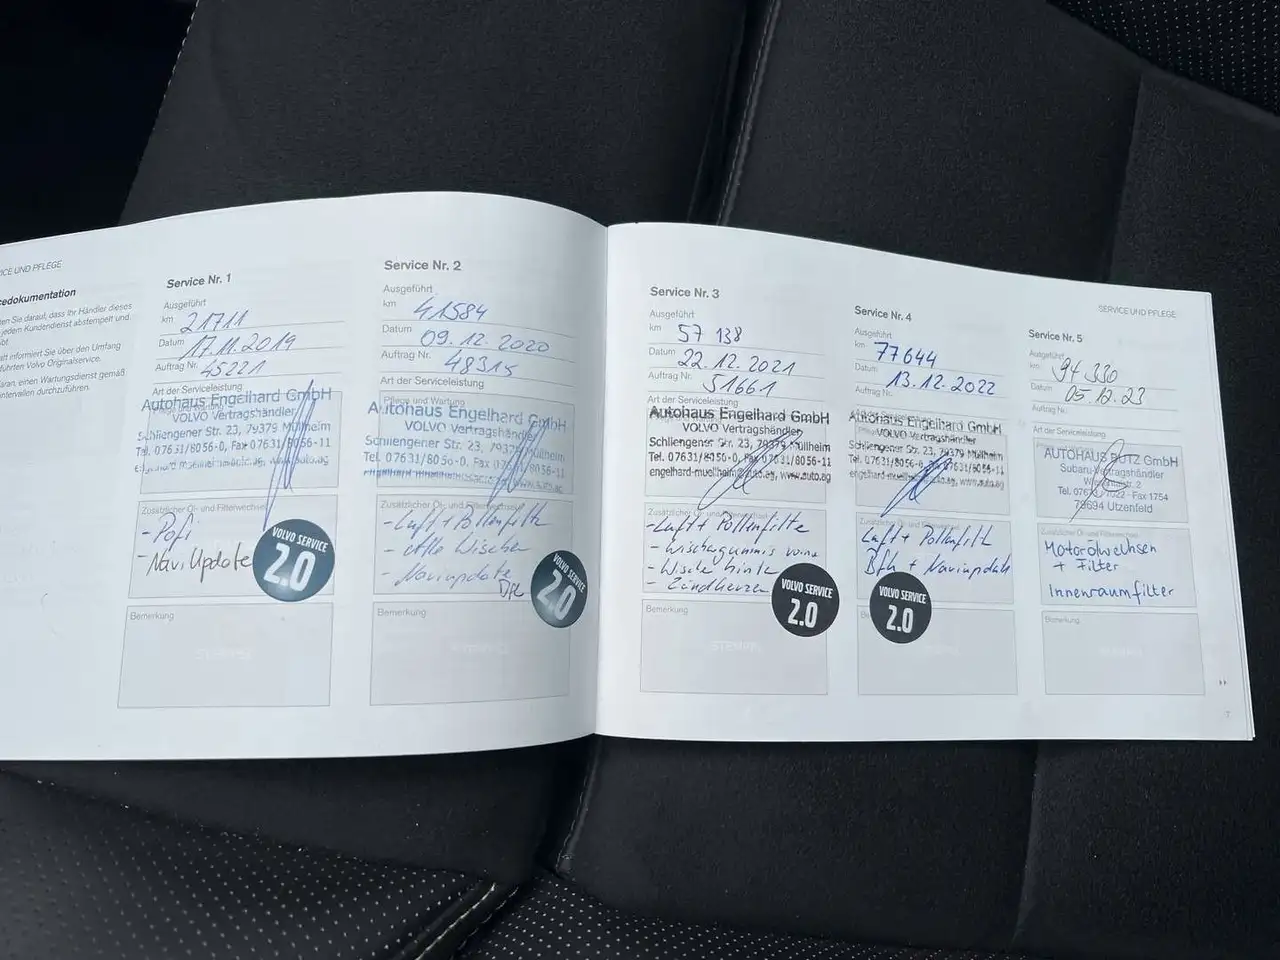 ICE UND PFLEGE
cedokumentation
ten Sie darauf, dass Ihr Händler dieses
jedem Kundendienst abstempelt und
bt.
att informiert Sie über den Umfang
führten Volvo Originalservice.
aran, einen Wartungsdienst gemäß
intervallen durchzuführen.
Service Nr. 1
Ausgeführt
km 21711
Datum 17.11.2019
Auftrag Nr. 45221
Art der Serviceleistung
Autohaus Engelhard GmbH
VOLVO Vertragshändler
Schliengener Str. 23, 79379 Müllheim
Tel. 07631/8056-0, Fax 07631/8056-11
Zusätzlicher Öl- und Filterwechsel
- Pofi
- Navi Update
VOLVO SERVICE
2.0
Bemerkung
STEMPEL
Service Nr. 2
Ausgeführt
km 41584
Datum 09.12.2020
Auftrag Nr. 48315
Art der Serviceleistung
Pflege und Wartung
Autohaus Engelhard GmbH
VOLVO Vertragshändler
Schliengener Str. 23, 79379 Müllheim
Tel. 07631/8056-0, Fax 07631/8056-11
Zusätzlicher Öl- und Filterwechsel
- Luft + Pollenfilt
- Alle Wischer
- Naviupdate
VOLVO SERVICE
2.0
Bemerkung
Service Nr. 3
Ausgeführt
km 57 138
Datum 22.12.2021
Auftrag Nr. 51661
Art der Serviceleistung
Autohaus Engelhard GmbH
VOLVO Vertragshändler
Schliengener Str. 23, 79379 Müllheim
Tel. 07631/8056-0, Fax 07631/8056-11
engelhard-muellheim@auto.ag, www.auto.ag
Zusätzlicher Öl- und Filterwechsel
- Luft + Pollenfilte
- Wischergummis vorne
- Wische hinte
- Zündkerzen
VOLVO SERVICE
2.0
Bemerkung
STEMPEL
SERVICE UND PFLEGE
Service Nr. 4
Ausgeführt
km 77644
Datum 13.12.2022
Auftrag Nr.
Autohaus Engelhard GmbH
VOLVO Vertragshändler
Schliengener Str. 23, 79379 Müllheim
Tel. 07631/8056-0, Fax 07631/8056-11
engelhard-muellheim@auto.ag, www.auto.ag
Zusätzlicher Öl- und Filterwechsel
Luft + Pollenfilt
Bfl + Naviupdate
VOLVO SERVICE
2.0
Service Nr. 5
Ausgeführt
km 94 330
Datum 05.12.23
Auftrag Nr.
Art der Serviceleistung
AUTOHAUS BUTZ GmbH
Subaru-Vertragshändler
Fax 1754
79694 Utzenfeld
Zusätzlicher Öl- und Filterwechsel
Motorölwechsen
+ Filter
Innenraumfilter
Bemerkung
7